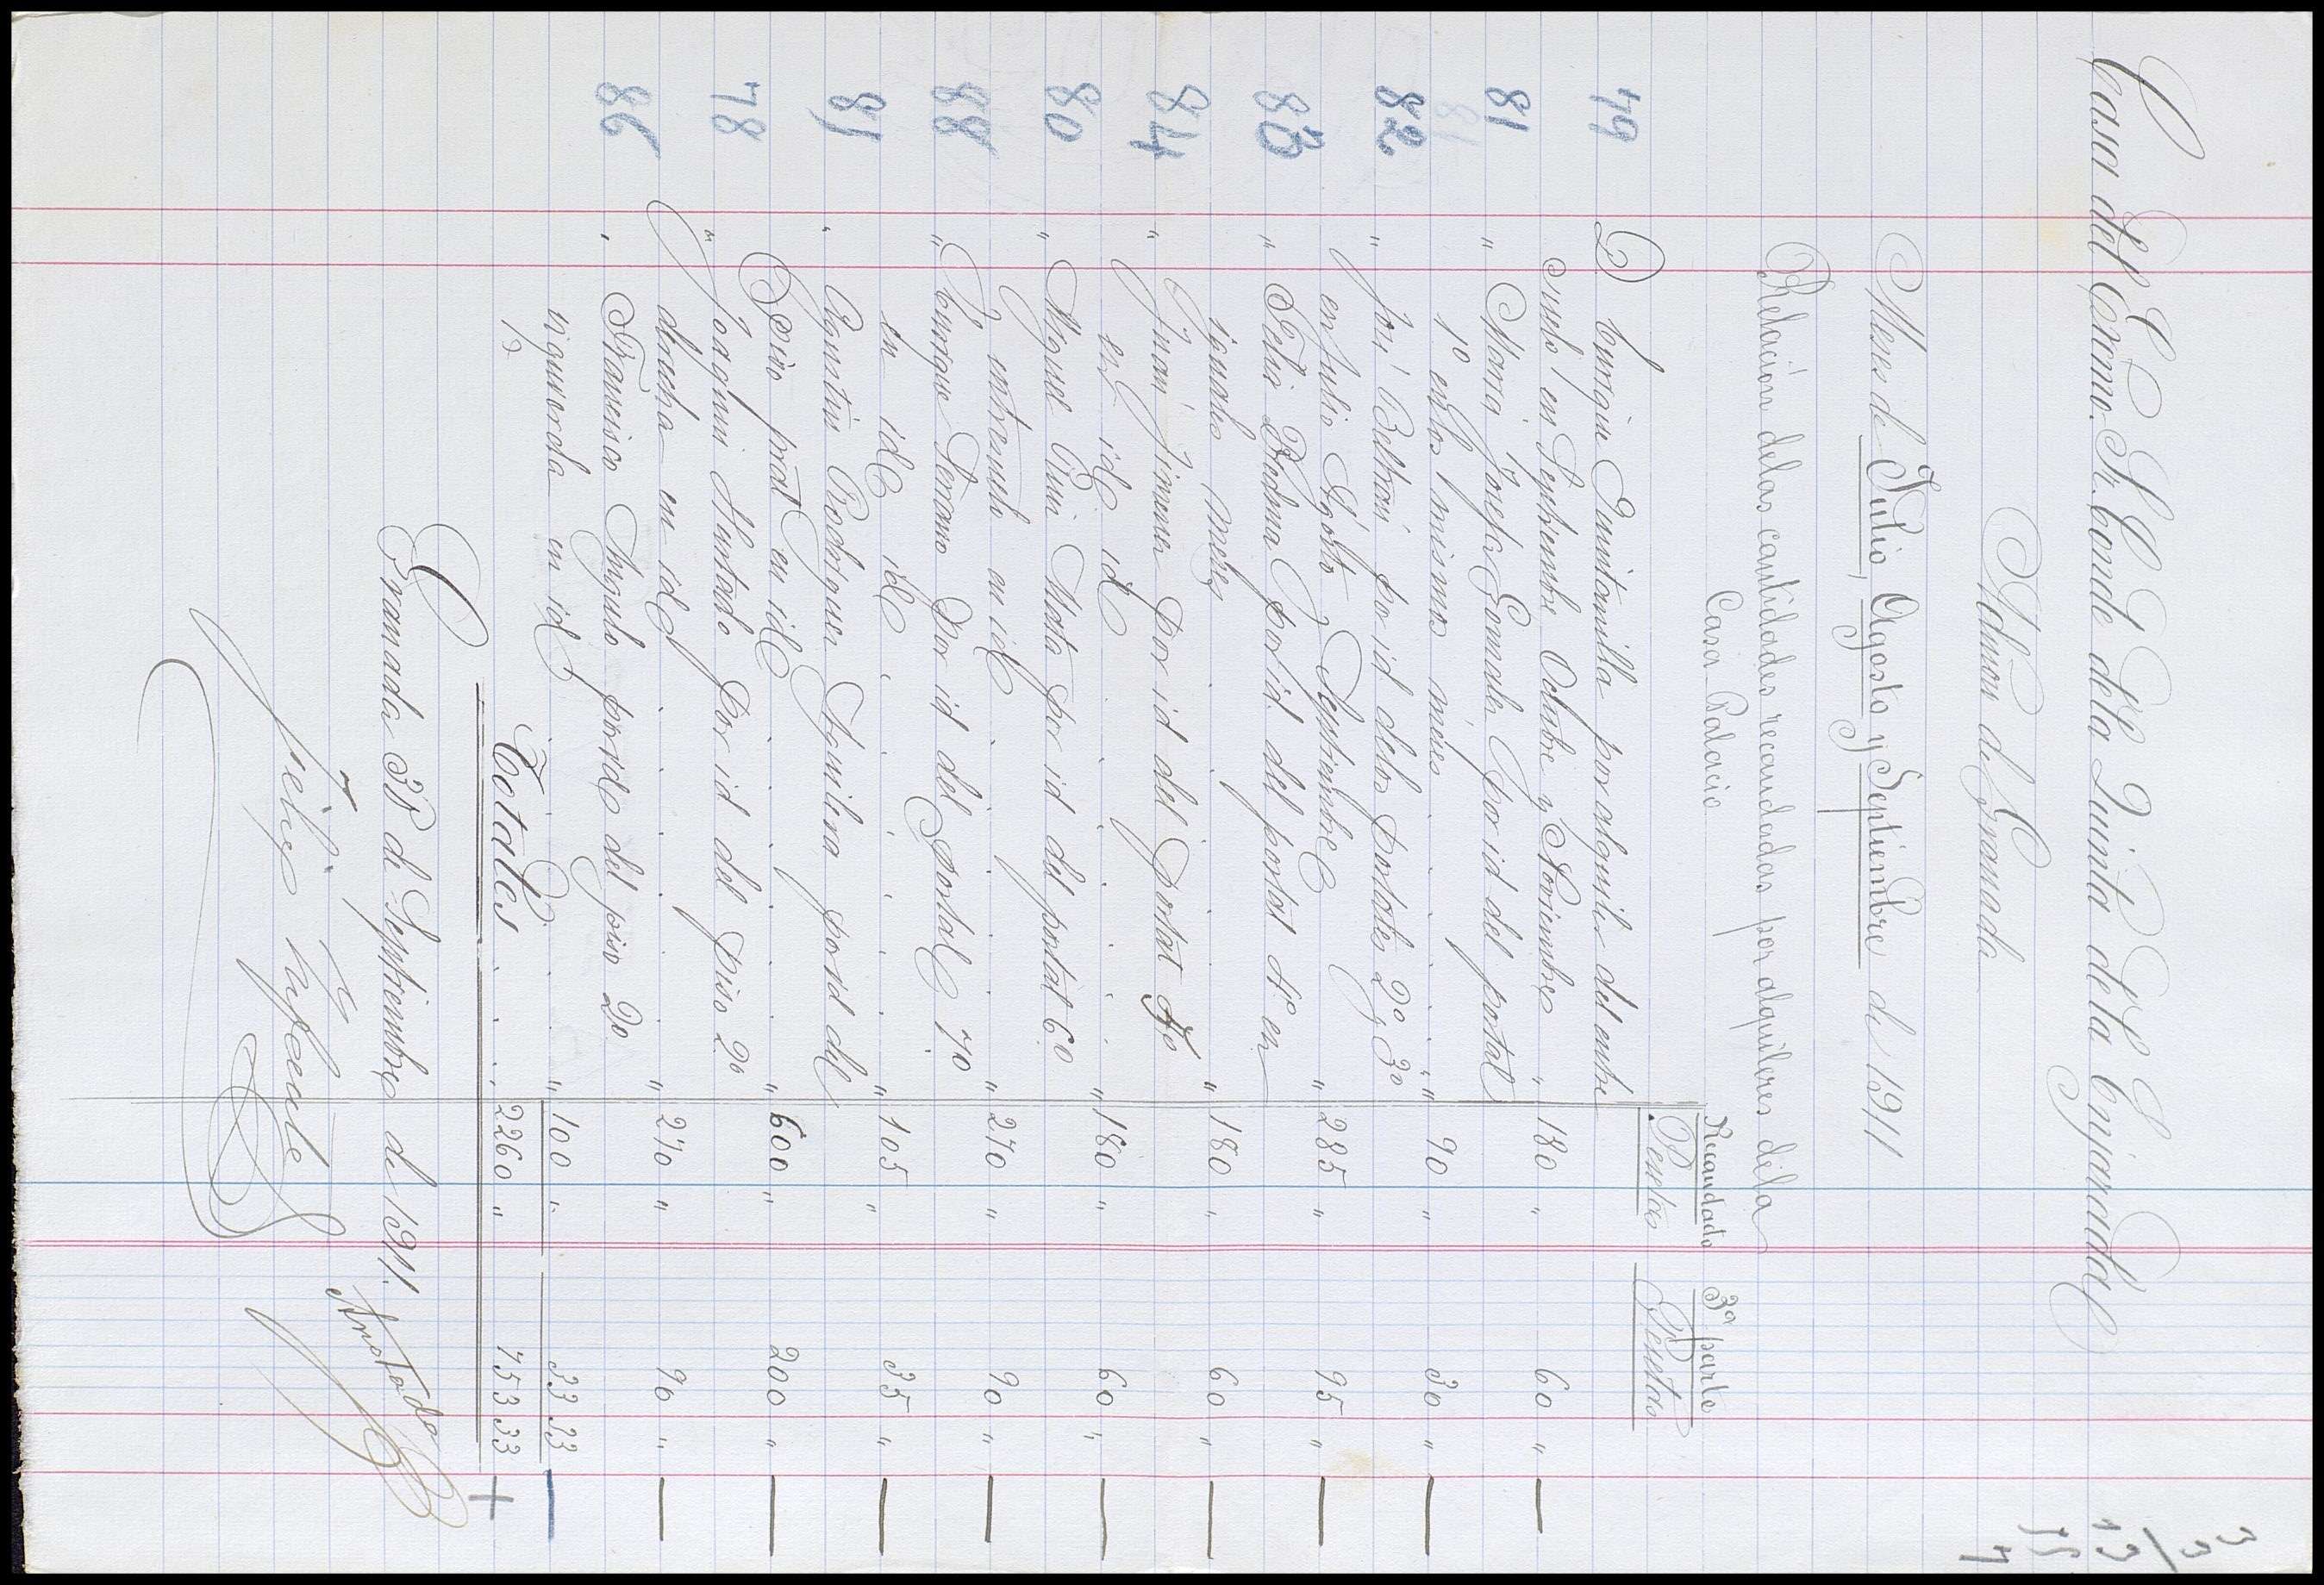 Casa del Excmo. Sr. Conde de la Quinta de la Enjarada
Admon de Granada
Meses de Julio, Agosto y Septiembre de 1911
Relación de las cantidades recaudadas por alquileres de la
Casa Palacio
Recaudado 3ª parte
Pesetas Pesetas
79 D Enrique Quintanilla por alquiler del entre
suelo en Septiembre Octubre y Noviembre " 180 " 60 "
81 " María Josefa González por id del portal
1º en los mismos meses " 90 " 30 "
82 " José Beltrán por id de los portales 2º y 3º
en Julio Agosto y Septiembre " 285 " 95 "
83 " Felix Bedma por id. del portal 4º en
iguales meses " 180 " 60 "
84 " Juan Jimenez por id del portal
en id id " 180 " 60 "
80 " Miguel Mota por id del portal 6º
entresuelo en id " 270 " 90 "
88 " Enrique Serrano por id del portal 7º
en id id " 105 " 35 "
" Agustín Rodriguez Aguilera por id del
piso pral en id " 600 " 200 "
78 " Joaquin Hurtado por id del piso 2º
derecha en id " 270 " 90 "
86 " Francisco Angulo por id del piso 2º
izquierda en id " 100 " 33 33
Totales 2260 " 753 33
Granada 30 de Septiembre de 1911.
Felix Infante
Anotado